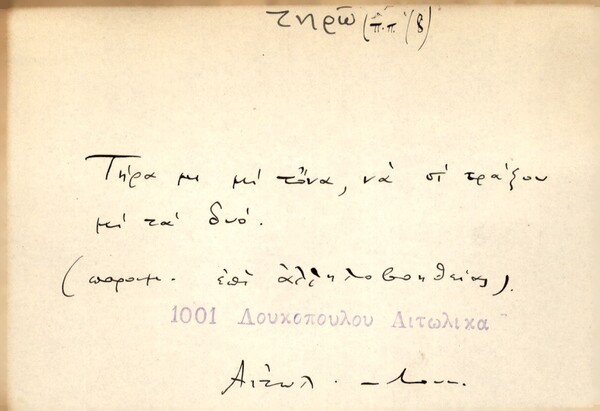 τηρῶ (π.π. 18)
Τήρα με μέ τὄνα, νὰ σέ τράξου
μέ τά δυό.
(παροιμ. ἐπὶ ἀλληλοβοηθείας).
1001 Λουκοπουλου Αιτωλικα
Αἰτωλ. - Λουκ.